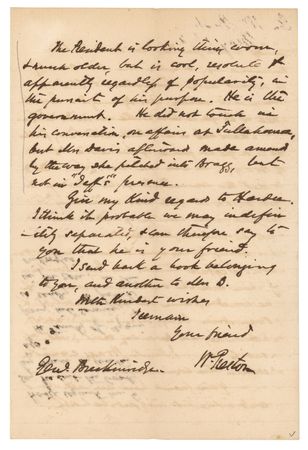 The President is looking thin, worn,
& much older, but is cool, resolute &
apparently regardless of popularity, in
the pursuit of his purpose. He is the
government. He did not touch in
his conversation, on affairs at Tullahoma,
but Mrs Davis afterward made amends
by the way she pitched into Bragg, but
not in "Jeff's" presence.
Give my kind regards to Hardee.
I think it probable we may indefin-
itely separated, & can therefore say to
you that he is your friend.
I send back a book belonging
to you, and another to Mrs B.
With kindest wishes
I remain
Your friend
W. Preston
Genl. Breckinridge